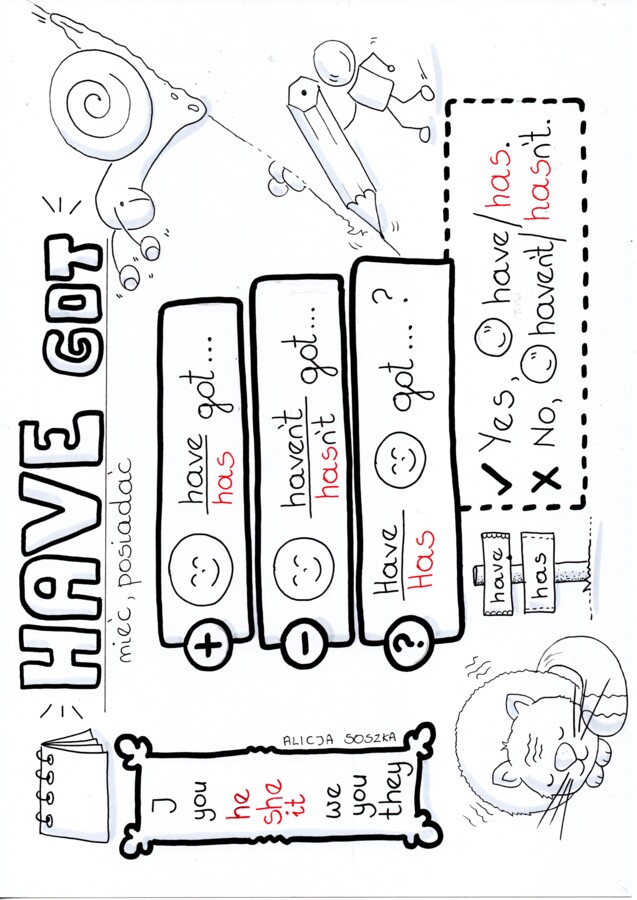 HAVE GOT
mieć, posiadać
I
you
he
she
it
we
you
they
ALICJA SOSZKA
+
have got...
has
-
haven't got...
hasn't
?
Have got...?
Has
have
has
✓ Yes, have/has.
x No, haven't/hasn't.